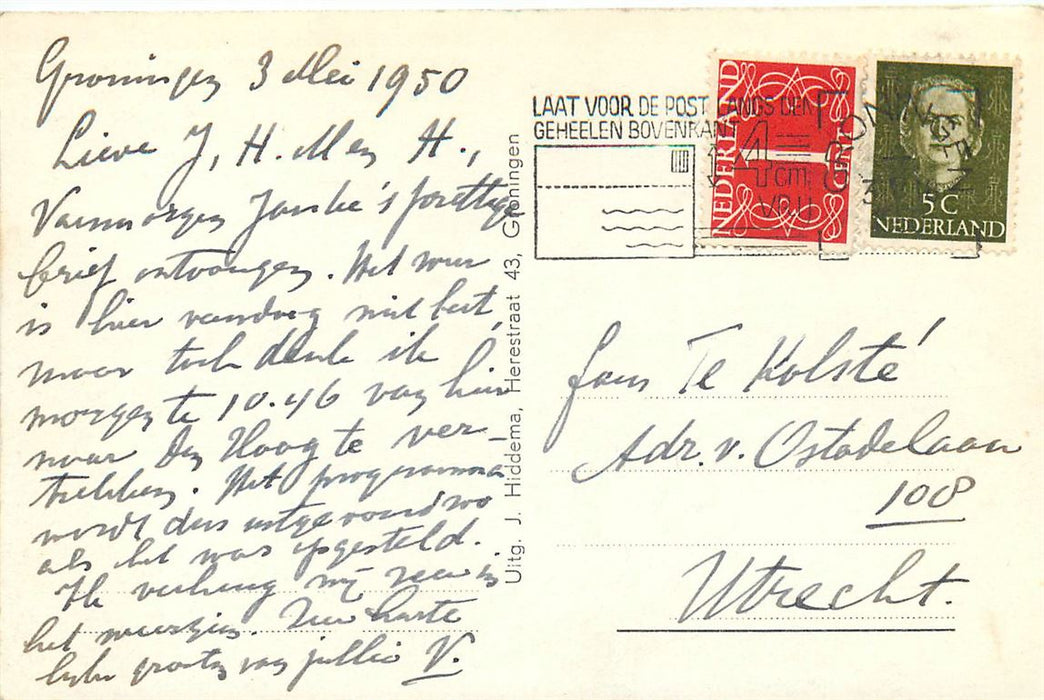 Groningen 3 Mei 1950
Lieve J, H. M en H.,
Vanmorgen prettige
brief ontvangen. Het weer
is hier vandaag niet best
maar toch denk ik
morgen te 10.46 van hier
naar Den Haag te ver-
trekken. Het programma
wordt dus uitgevoerd zo
als het was opgesteld.
Ik verheug mij zeer in
het weerzien. Zeer harte
lijke groeten van jullie V.
Uitg. J. Hiddema, Herestraat 43, Groningen
LAAT VOOR DE POST LANGS DEN
GEHEELEN BOVENKANT
4
cm
VRIJ
GRONINGEN
NEDERLAND
CENT
5 C
NEDERLAND
Fam Te Kolsté
Adr. v. Ostadelaan
108
Utrecht.